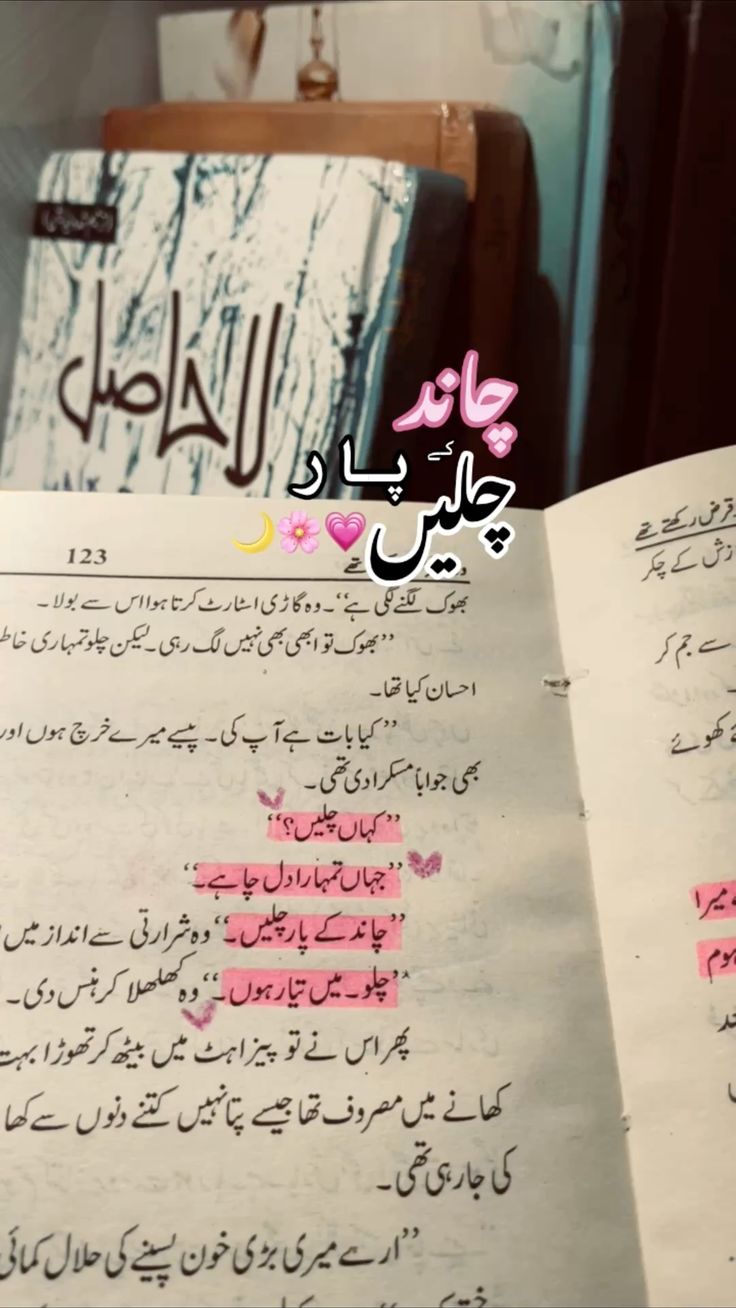 لاحاصل
چاند
کے پار
چلیں
123
قرض رکھتے تھے
بھوک لگنے لگی ہے‘‘۔ وہ گاڑی اسٹارٹ کرتا ہوا اس سے بولا۔
’’بھوک تو ابھی بھی نہیں لگ رہی۔ لیکن چلو تمہاری
احسان کیا تھا۔
’’کیا بات ہے آپ کی۔ پیسے میرے خرچ ہوں اور
بھی جواباً مسکرا دی تھی۔
’’کہاں چلیں؟‘‘
’’جہاں تمہارا دل چاہے۔‘‘
’’چاند کے پار چلیں۔‘‘ وہ شرارتی سے انداز میں
’’چلو۔ میں تیار ہوں۔‘‘ وہ کھلکھلا کر ہنس دی۔
پھر اس نے تو پیزا ہٹ میں بیٹھ کر تھوڑا بہت
کھانے میں مصروف تھا جیسے پتا نہیں کتنے دنوں سے
کی جا رہی تھی۔
’’ارے میری بڑی خون پسینے کی حلال کمائی
کے چکر
سے جم کر
کھوئے
میرا